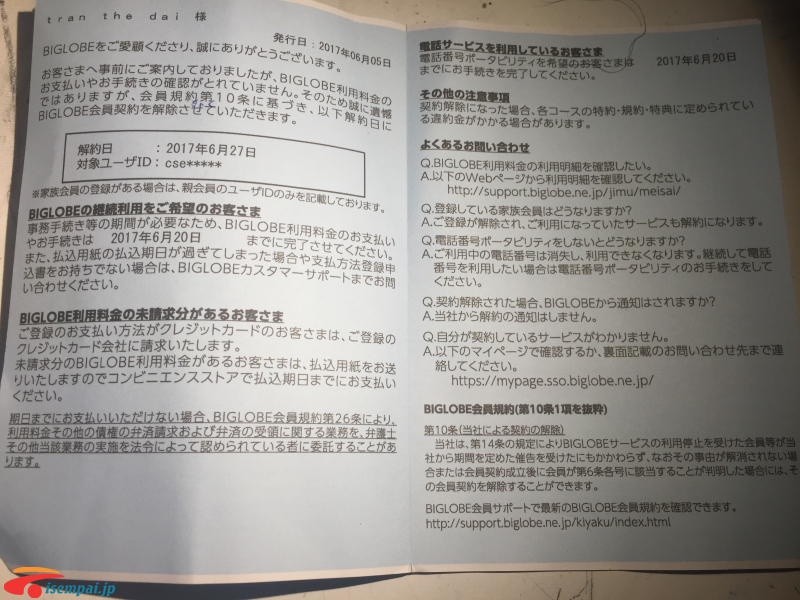 tran the dai 様
発行日：2017年06月05日
BIGLOBEをご愛顧くださり、誠にありがとうございます。
お客さまへ事前にご案内しておりましたが、BIGLOBE利用料金の
お支払いやお手続きの確認がとれていません。そのため誠に遺憾
ではありますが、会員規約第10条に基づき、以下解約日に
BIGLOBE会員契約を解除させていただきます。
解約日　　　：2017年6月27日
対象ユーザID：cse*****
※家族会員の登録がある場合は、親会員のユーザIDのみを記載しております。
BIGLOBEの継続利用をご希望のお客さま
事務手続き等の期間が必要なため、BIGLOBE利用料金のお支払い
やお手続きは　2017年6月20日　までに完了させてください。
また、払込用紙の払込期日が過ぎてしまった場合や支払方法登録申
込書をお持ちでない場合は、BIGLOBEカスタマーサポートまでお問
い合わせください。
BIGLOBE利用料金の未請求分があるお客さま
ご登録のお支払い方法がクレジットカードのお客さまは、ご登録の
クレジットカード会社に請求いたします。
未請求分のBIGLOBE利用料金があるお客さまは、払込用紙をお送
りいたしますのでコンビニエンスストアで払込期日までにお支払い
ください。
期日までにお支払いいただけない場合、BIGLOBE会員規約第26条により、
利用料金その他の債権の弁済請求および弁済の受領に関する業務を、弁護士
その他当該業務の実施を法令によって認められている者に委託することがあ
ります。
電話サービスを利用しているお客さま
電話番号ポータビリティを希望のお客さまは　2017年6月20日
までにお手続きを完了してください。
その他の注意事項
契約解除になった場合、各コースの特約・規約・特典に定められてい
る違約金がかかる場合があります。
よくあるお問い合わせ
Q.BIGLOBE利用料金の利用明細を確認したい。
A.以下のWebページから利用明細を確認してください。
http://support.biglobe.ne.jp/jimu/meisai/
Q.登録している家族会員はどうなりますか?
A.ご登録が解除され、ご利用になっていたサービスも解約になります。
Q.電話番号ポータビリティをしないとどうなりますか?
A.ご利用中の電話番号は消失し、利用できなくなります。継続して電話
番号を利用したい場合は電話番号ポータビリティのお手続きをして
ください。
Q.契約解除された場合、BIGLOBEから通知はされますか?
A.当社から解約の通知はしません。
Q.自分が契約しているサービスがわかりません。
A.以下のマイページで確認するか、裏面記載のお問い合わせ先まで連
絡してください。
https://mypage.sso.biglobe.ne.jp/
BIGLOBE会員規約(第10条1項を抜粋)
第10条(当社による契約の解除)
当社は、第14条の規定によりBIGLOBEサービスの利用停止を受けた会員等が当
社から期間を定めた催告を受けたにもかかわらず、なおその事由が解消されない場
合または会員契約成立後に会員が第6条各号に該当することが判明した場合には、そ
の会員契約を解除することができます。
BIGLOBE会員サポートで最新のBIGLOBE会員規約を確認できます。
http://support.biglobe.ne.jp/kiyaku/index.html
isempai.jp